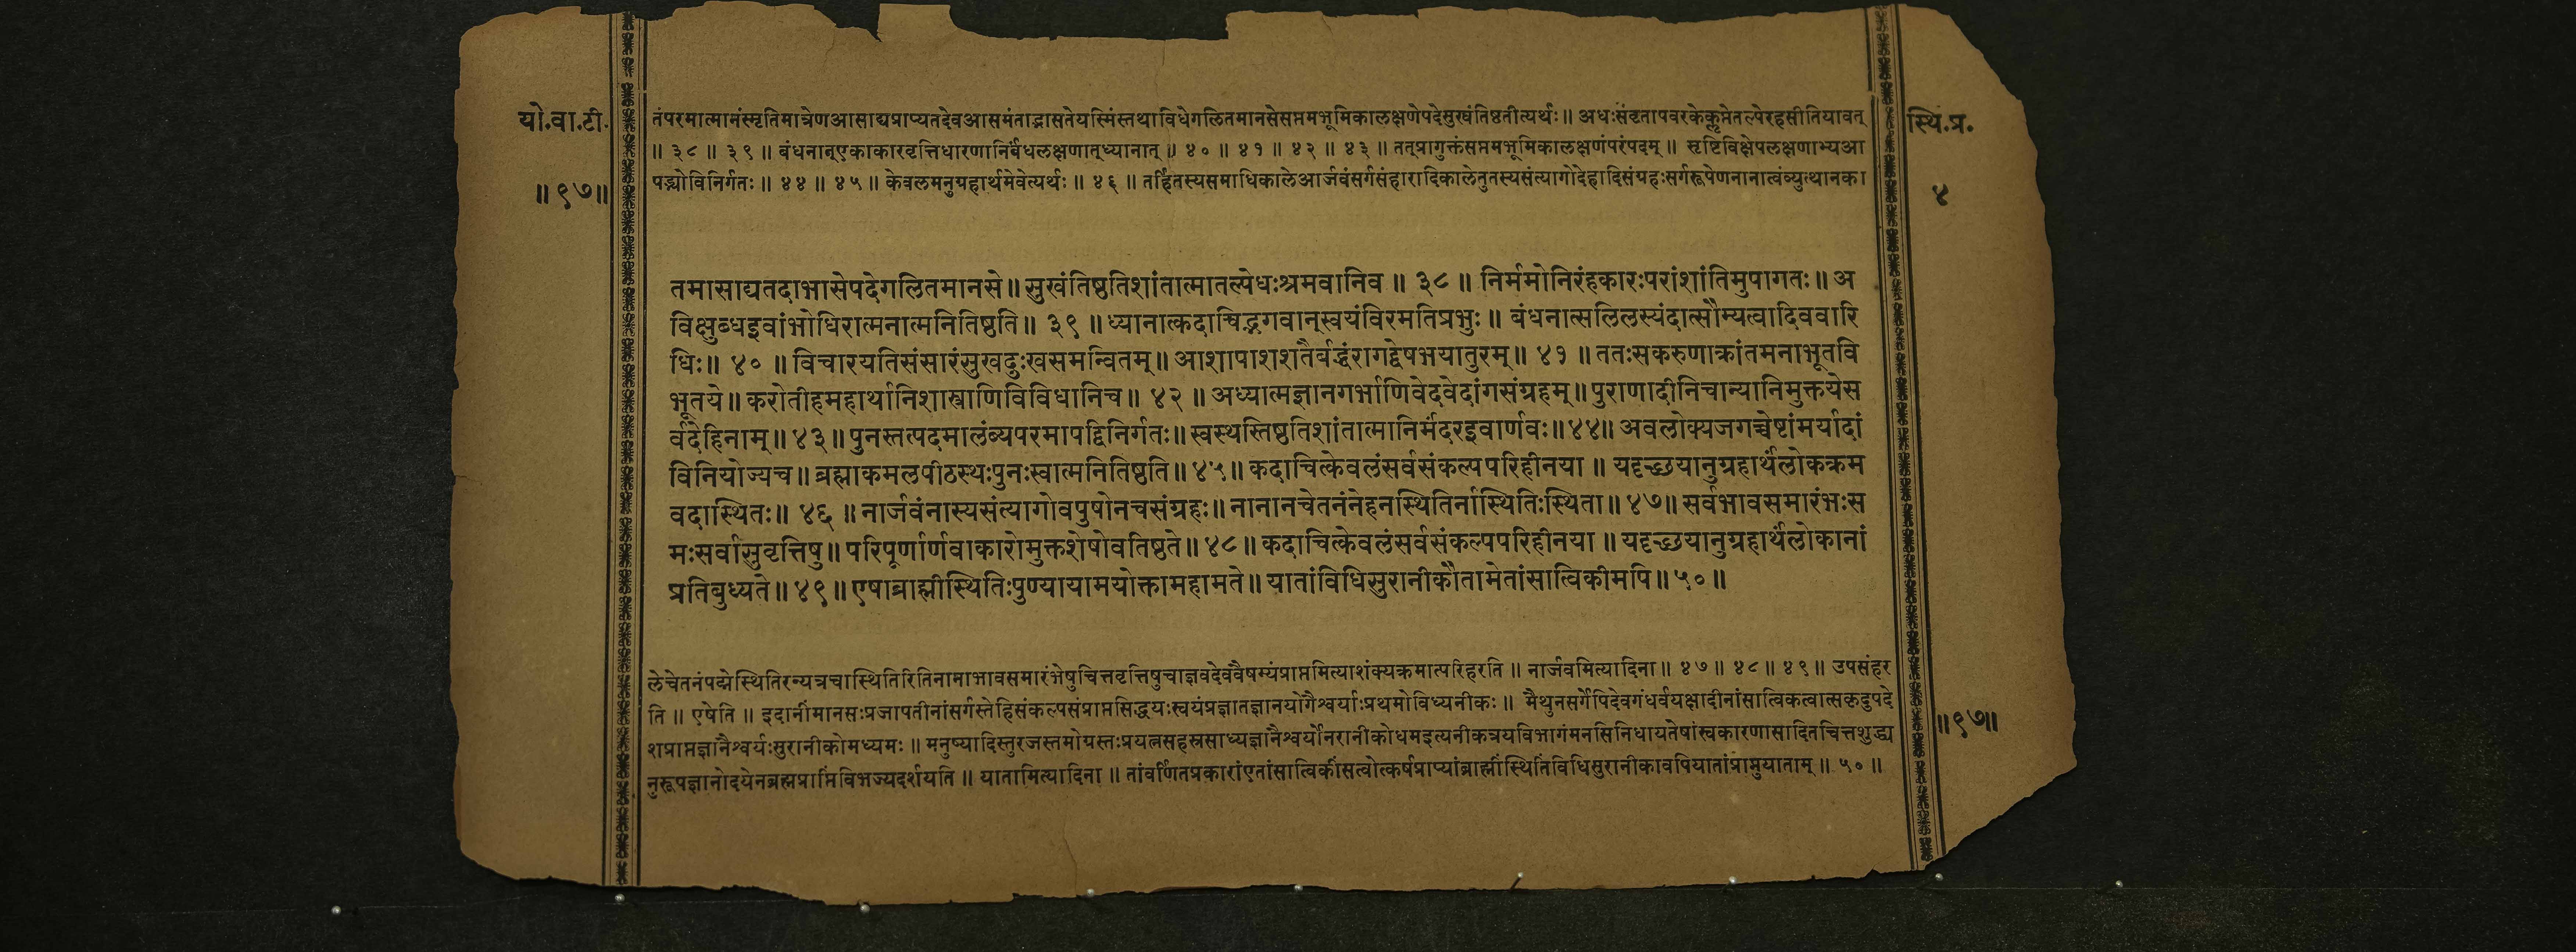 यो.वा.टी.
॥९७॥
तंपरमात्मानंस्मृतिमात्रेणआसाद्यप्राप्यतदेवआसमंताद्भासतेयस्मिंस्तथाविधेगलितमानसेसप्तमभूमिकालक्षणेपदेसुखंतिष्ठतीत्यर्थः॥ अधःसंवृतापवरकेक्लृप्तेतल्पेरहसीतियावत्
॥ ३८ ॥ ३९ ॥ बंधनात्एकाकारवृत्तिधारणानिर्बंधलक्षणात्ध्यानात् ॥ ४० ॥ ४१ ॥ ४२ ॥ ४३ ॥ तत्प्रागुक्तंसप्तमभूमिकालक्षणंपरंपदम् ॥ सृष्टिविक्षेपलक्षणाभ्यआ
पद्भ्योविनिर्गतः॥ ४४ ॥ ४५ ॥ केवलमनुग्रहार्थमेवेत्यर्थः ॥ ४६ ॥ तर्हितस्यसमाधिकालेआर्जवंसर्गसंहारादिकालेतुतस्यसंत्यागोदेहादिसंग्रहःसर्गरूपेणनानात्वंव्युत्थानका
स्थि.प्र.
४
तमासाद्यतदाभासेपदेगलितमानसे॥ सुखंतिष्ठतिशांतात्मातल्पेधःश्रमवानिव ॥ ३८ ॥ निर्ममोनिरंहकारःपरांशांतिमुपागतः॥ अ
विक्षुब्धइवांभोधिरात्मनात्मनितिष्ठति॥ ३९ ॥ध्यानात्कदाचिद्भगवान्स्वयंविरमतिप्रभुः॥ बंधनात्सलिलस्यंदात्सौम्यत्वादिववारि
धिः॥ ४० ॥ विचारयतिसंसारंसुखदुःखसमन्वितम्॥ आशापाशशतैर्बद्धंरागद्वेषभयातुरम्॥ ४१ ॥ ततःसकरुणाक्रांतमनाभूतवि
भूतये॥ करोतीहमहार्थानिशास्त्राणिविविधानिच॥ ४२ ॥ अध्यात्मज्ञानगर्भाणिवेदवेदांगसंग्रहम्॥ पुराणादीनिचान्यानिमुक्तयेस
र्वदेहिनाम्॥ ४३॥ पुनस्तत्पदमालंब्यपरमापद्विनिर्गतः॥ स्वस्थस्तिष्ठतिशांतात्मानिर्मंदरइवार्णवः॥४४॥ अवलोक्यजगच्चेष्टांमर्यादां
विनियोज्यच॥ ब्रह्माकमलपीठस्थःपुनःस्वात्मनितिष्ठति॥ ४५॥ कदाचित्केवलंसर्वसंकल्पपरिहीनया ॥ यदृच्छयानुग्रहार्थंलोकक्रम
वदास्थितः॥ ४६ ॥ नार्जवंनास्यसंत्यागोवपुषोनचसंग्रहः॥ नानानचेतनंनेहनस्थितिर्नास्थितिःस्थिता॥ ४७॥ सर्वभावसमारंभःस
मःसर्वासुवृत्तिषु॥ परिपूर्णार्णवाकारोमुक्तशेषोवतिष्ठते॥ ४८॥ कदाचित्केवलंसर्वसंकल्पपरिहीनया ॥ यदृच्छयानुग्रहार्थंलोकानां
प्रतिबुध्यते॥ ४९॥ एषाब्राह्मीस्थितिःपुण्यायामयोक्तामहामते॥ यातांविधिसुरानीकौतामेतांसात्विकीमपि॥ ५०॥
लेचेतनंपद्मेस्थितिरन्यत्रचास्थितिरितिनामाभावसमारंभेषुचित्तवृत्तिषुचाज्ञवदेववैषम्यंप्राप्तमित्याशंक्यक्रमात्परिहरति ॥ नार्जवमित्यादिना॥ ४७॥ ४८॥ ४९॥ उपसंहर
ति ॥ एषेति ॥ इदानींमानसःप्रजापतीनांसर्गस्तेहिसंकल्पसंप्राप्तसिद्धयःस्वयंप्रज्ञातज्ञानयोगैश्वर्याःप्रथमोविध्यनीकः॥ मैथुनसर्गेपिदेवगंधर्वयक्षादीनांसात्विकत्वात्सकृदुपदे
शप्राप्तज्ञानैश्वर्यःसुरानीकोमध्यमः॥ मनुष्यादिस्तुरजस्तमोग्रस्तःप्रयत्नसहस्रसाध्यज्ञानैश्वर्योनरानीकोधमइत्यनीकत्रयविभागंमनसिनिधायतेषांस्वकारणासादितचित्तशुद्ध्य
नुरूपज्ञानोदयेनब्रह्मप्राप्तिंविभज्यदर्शयति ॥ यातामित्यादिना ॥ तांवर्णितप्रकारांएतांसात्विकींसत्वोत्कर्षप्राप्यांब्राह्मींस्थितिंविधिसुरानीकावपियातांप्राप्नुयाताम्॥ ५०॥
॥९७॥